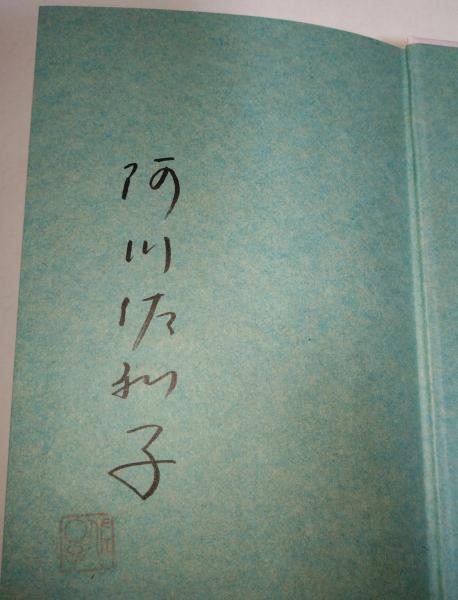 阿川佐和子